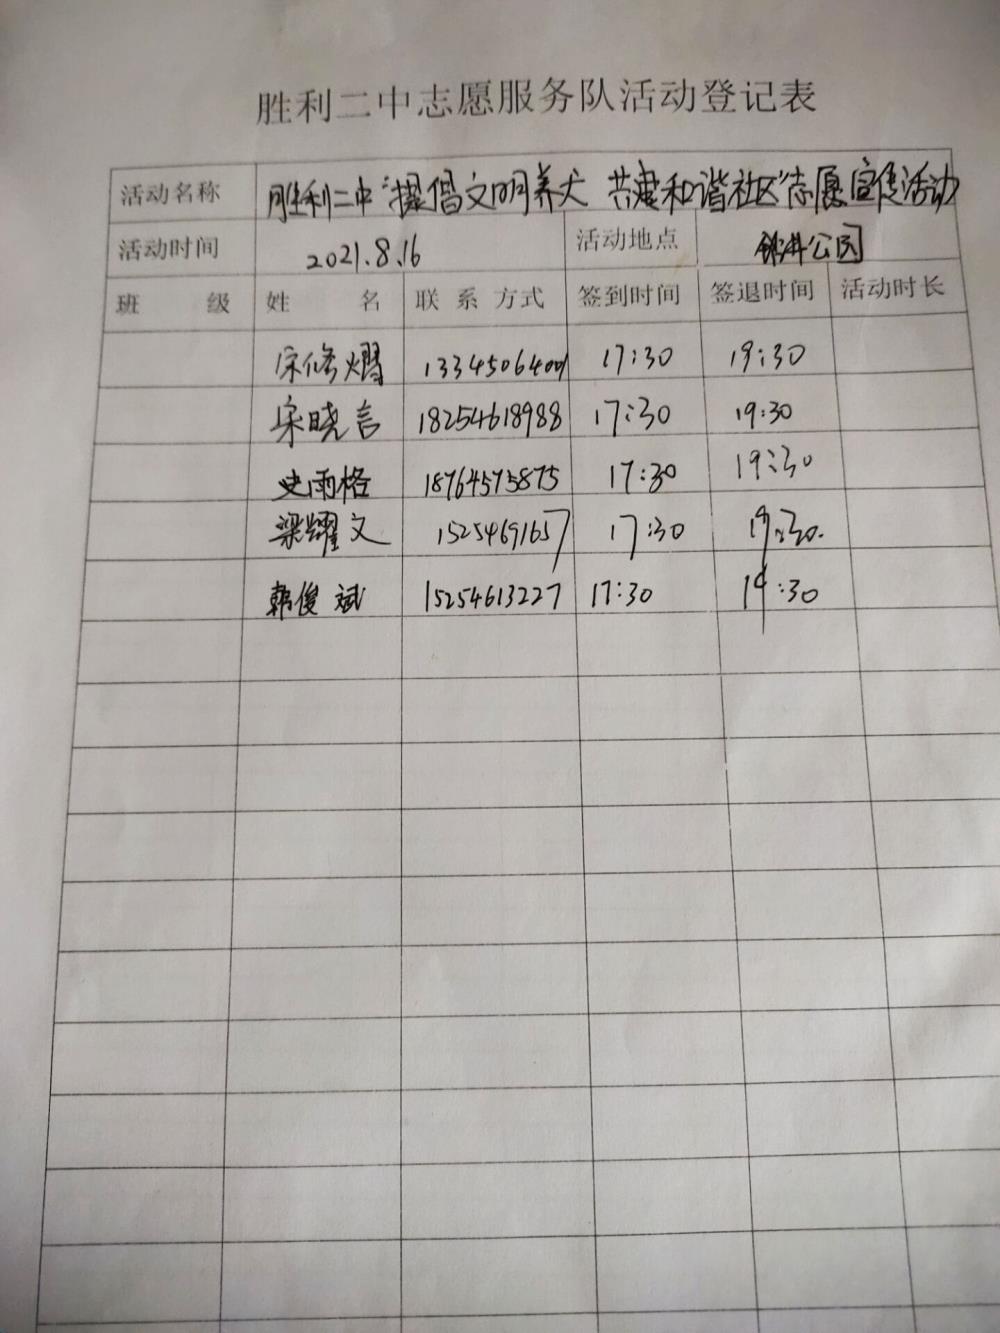 胜利二中志愿服务队活动登记表
活动名称 胜利二中“提倡文明养犬 共建和谐社区”志愿宣传活动
活动时间 2021.8.16 活动地点 公园
班 级 姓 名 联系方式 签到时间 签退时间 活动时长
宋修熠 13345064001 17:30 19:30
宋晓言 18254618988 17:30 19:30
史雨格 18764575875 17:30 19:30
梁耀文 15254691657 17:30 19:30.
韩俊斌 15254613227 17:30 19:30